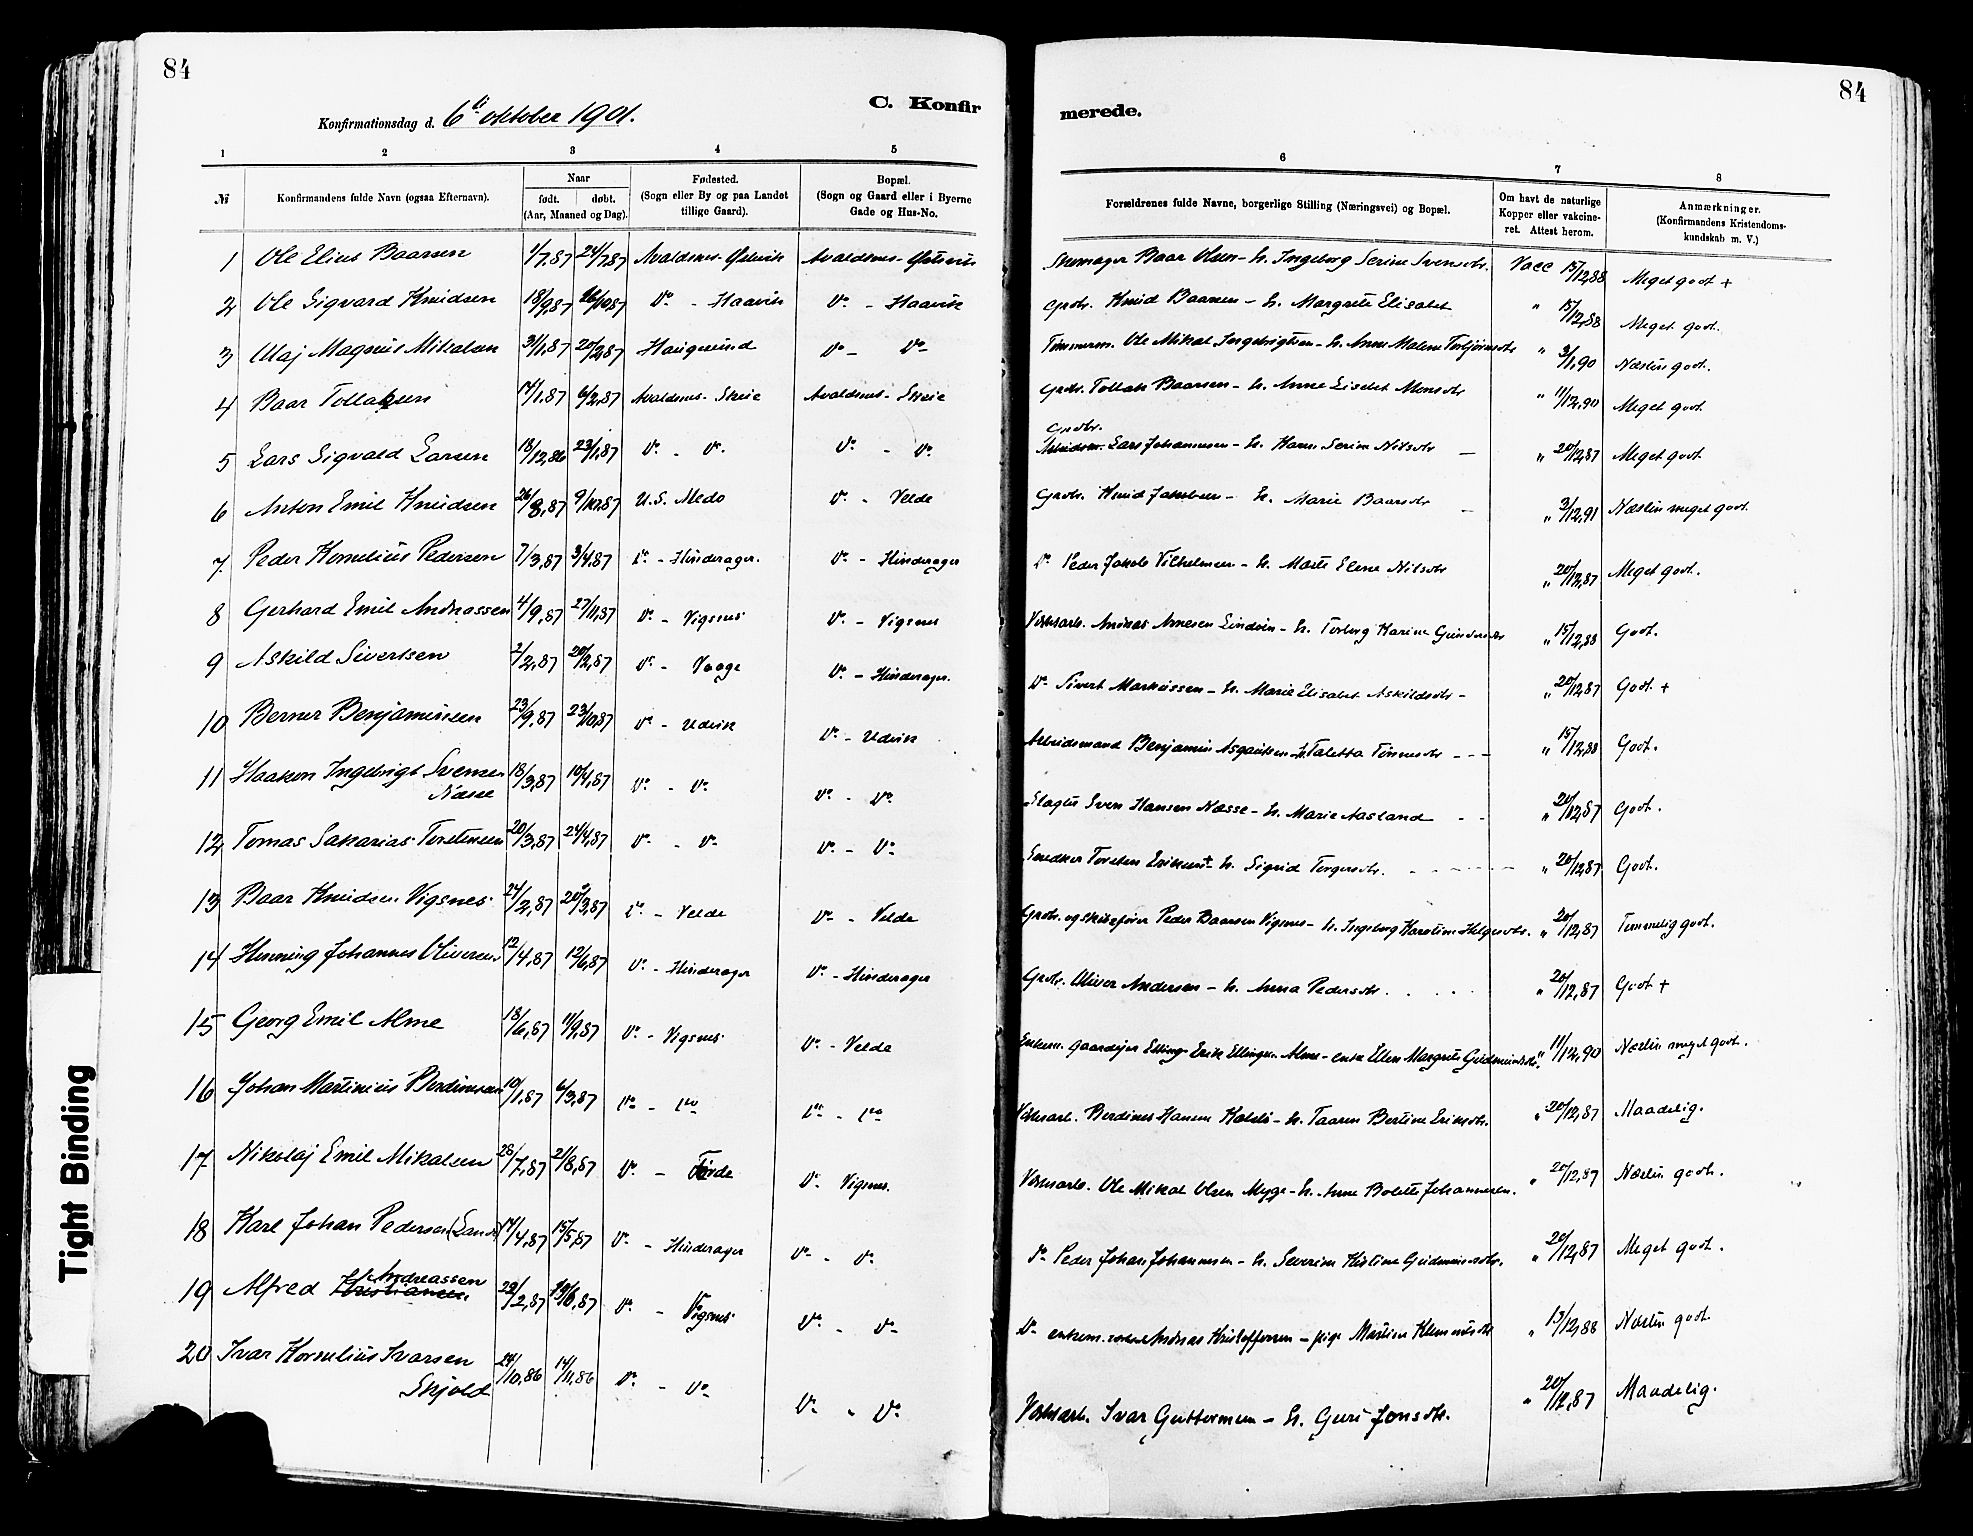 84
84
C. Konfir
merede.
Konfirmationsdag d. 6te oktober 1901.
1 2 3 4 5
6 7 8
№ Konfirmandens fulde Navn (ogsaa Efternavn). Naar født. døbt. (Aar, Maaned og Dag). Fødested. (Sogn eller By og paa Landet tillige Gaard). Bopæl. (Sogn og Gaard eller i Byerne Gade og Hus-No.
Forældrenes fulde Navne, borgerlige Stilling (Næringsvei) og Bopæl. Om havt de naturlige Kopper eller vakcineret. Attest herom. Anmærkninger. (Konfirmandens Kristendomskundskab m. V.)
1 Ole Elius Baarsen 1/7.87 24/7.87 Avaldsnes - Avaldsnes - Skomager Baar Olsen - h. Ingeborg Serine Svensdtr. Vacc 15/12,88 Meget godt +
2 Ole Sigvard Knudsen 18/9.87 10.87 Do - Haavik Do - Haavik Grdbr. Knud Baarsen - h. Margrete Elisabet " 15/12,88 Meget godt.
3 Olaj Magnus Mikalsen 31/1.87 20/2.87 Haugesund Do - Do Tømmerm. Ole Mikal Ingebrigtsen - h. Anne Malene Torbjørnsdtr " 3/1,90 Næsten godt.
4 Baar Tollaksen 17/1.87 6/2.87 Avaldsnes - Skeie Avaldsnes - Skeie Grdbr. Tollak Baarsen - h. Anne Lisabet Monsdtr " 11/12,90 Meget godt
5 Lars Sigvald Larsen 18/12,86 23/1.87 Do - Do. Do - Do. Grdbr. Lars Johannesen - h. Karen Serine Nilsdtr " 20/12,87 Meget godt
6 Anton Emil Knudsen 26/8.87 9/10.87 U.S. Medo Do - Velde Grdbr. Knud Jakobsen - h. Marie Baarsdtr " 3/12,91 Næsten meget godt.
7 Peder Kornelius Pedersen 7/3.87 3/4.87 Do - Hinderager. Do - Hinderager Do Peder Jakob Vilhelmsen - h. Marte Elene Nilsdtr " 20/12,87 Meget godt.
8 Gerhard Emil Andreassen 4/9.87 27/11.87 Do - Vigsnes Do - Vigsnes Verksarb. Andreas Arnesen Lindøen - h. Torborg Karine Gundersdtr " 15/12,88 Godt.
9 Askild Sivertsen 2/2.87 20/2.87 Do - Vaage Do - Hinderager. Do Sivert Markussen - h. Marie Elisabet Askildsdtr - " 20/12,87 Godt +
10 Berner Benjaminsen 23/9.87 23/10.87 Do - Udvik Do - Udvik Arbeidsmand Benjamin Asgautsen - h. Taletta Tønnesdtr - - - " 15/12,88 Godt.
11 Haakon Ingebrigt Svensen Næsse 18/3.87 10/4.87 Do - Do. Do - Do. Slagter Sven Hansen Næsse - h. Marie Aasland - - " 20/12,87 Godt.
12 Tomas Sakarias Torstensen 20/3.87 24/4.87 Do - Do Do - Do Snedker Torsten Eriksen + h. Sigrid Torgersdtr. " 20/12,87 Godt.
13 Baar Knudsen Vigsnes 24/2.87 20/3.87 Do - Velde Do - Velde Grdbr. og skibsfører Peder Baarsen Vigsnes - h. Ingeborg Karoline Helgesdtr. " 20/12,87 Temmelig godt.
14 Henning Johannes Oliversen 12/4.87 12/6.87 Do - Hinderager Do - Hinderager Grdbr. Oliver Andersen - h. Anna Pedersdtr. " 20/12,87 Godt +
15 Georg Emil Alme 18/6.87 11/9.87 Do - Vigsnes Do - Velde gaardejer Erik Ellingsen Alme - enke Ellen Margrete Gudmundsdtr. " 11/12,90 Næsten meget godt.
16 Johan Martinius Berdinesen 10/1.87 6/3.87 Do - Do Do - Do Verksarb. Berdines Hansen - h. Taaren Bertine Eriksdtr. " 20/12,87 Maadelig.
17 Nikolaj Emil Mikalsen 26/7.87 21/8.87 Do - Førde Do. Vigsnes. Verksarb. Ole Mikal Olsen Myge - h. Anne Bolette Johannesen. " 20/12,87 Næsten godt.
18 Karl Johan Pedersen (Sand) 17/4.87 15/5.87 Do - Hinderager Do - Do. Do Peder Johan Johannesen - h. Severine Kristine Gudmundsdtr. " 20/12,87 Meget godt.
19 Alfred Kristiansen Andreassen 2.87 6.87 Do - Vigsnes Do - Do Do enkem. Andreas Kristoffersen - pige Martine Klemmetsdtr " 13/12,88 Næsten godt.
20 Ivar Kornelius Ivarsen Skjold 24/10,86 14/11.86 Do - Do Do - Do Verksarb. Ivar Guttormsen - h. Guri Jonsdtr. " 20/12,87 Maadelig.
Tight Binding